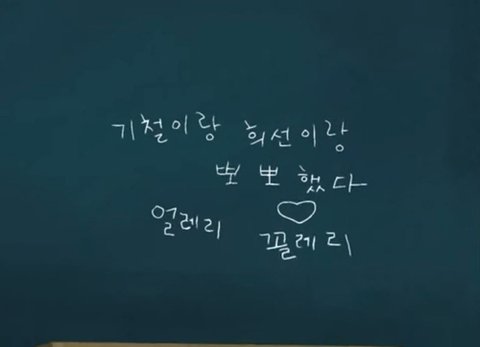 기철이랑 희선이랑
뽀뽀했다
♡
얼레리 꼴레리